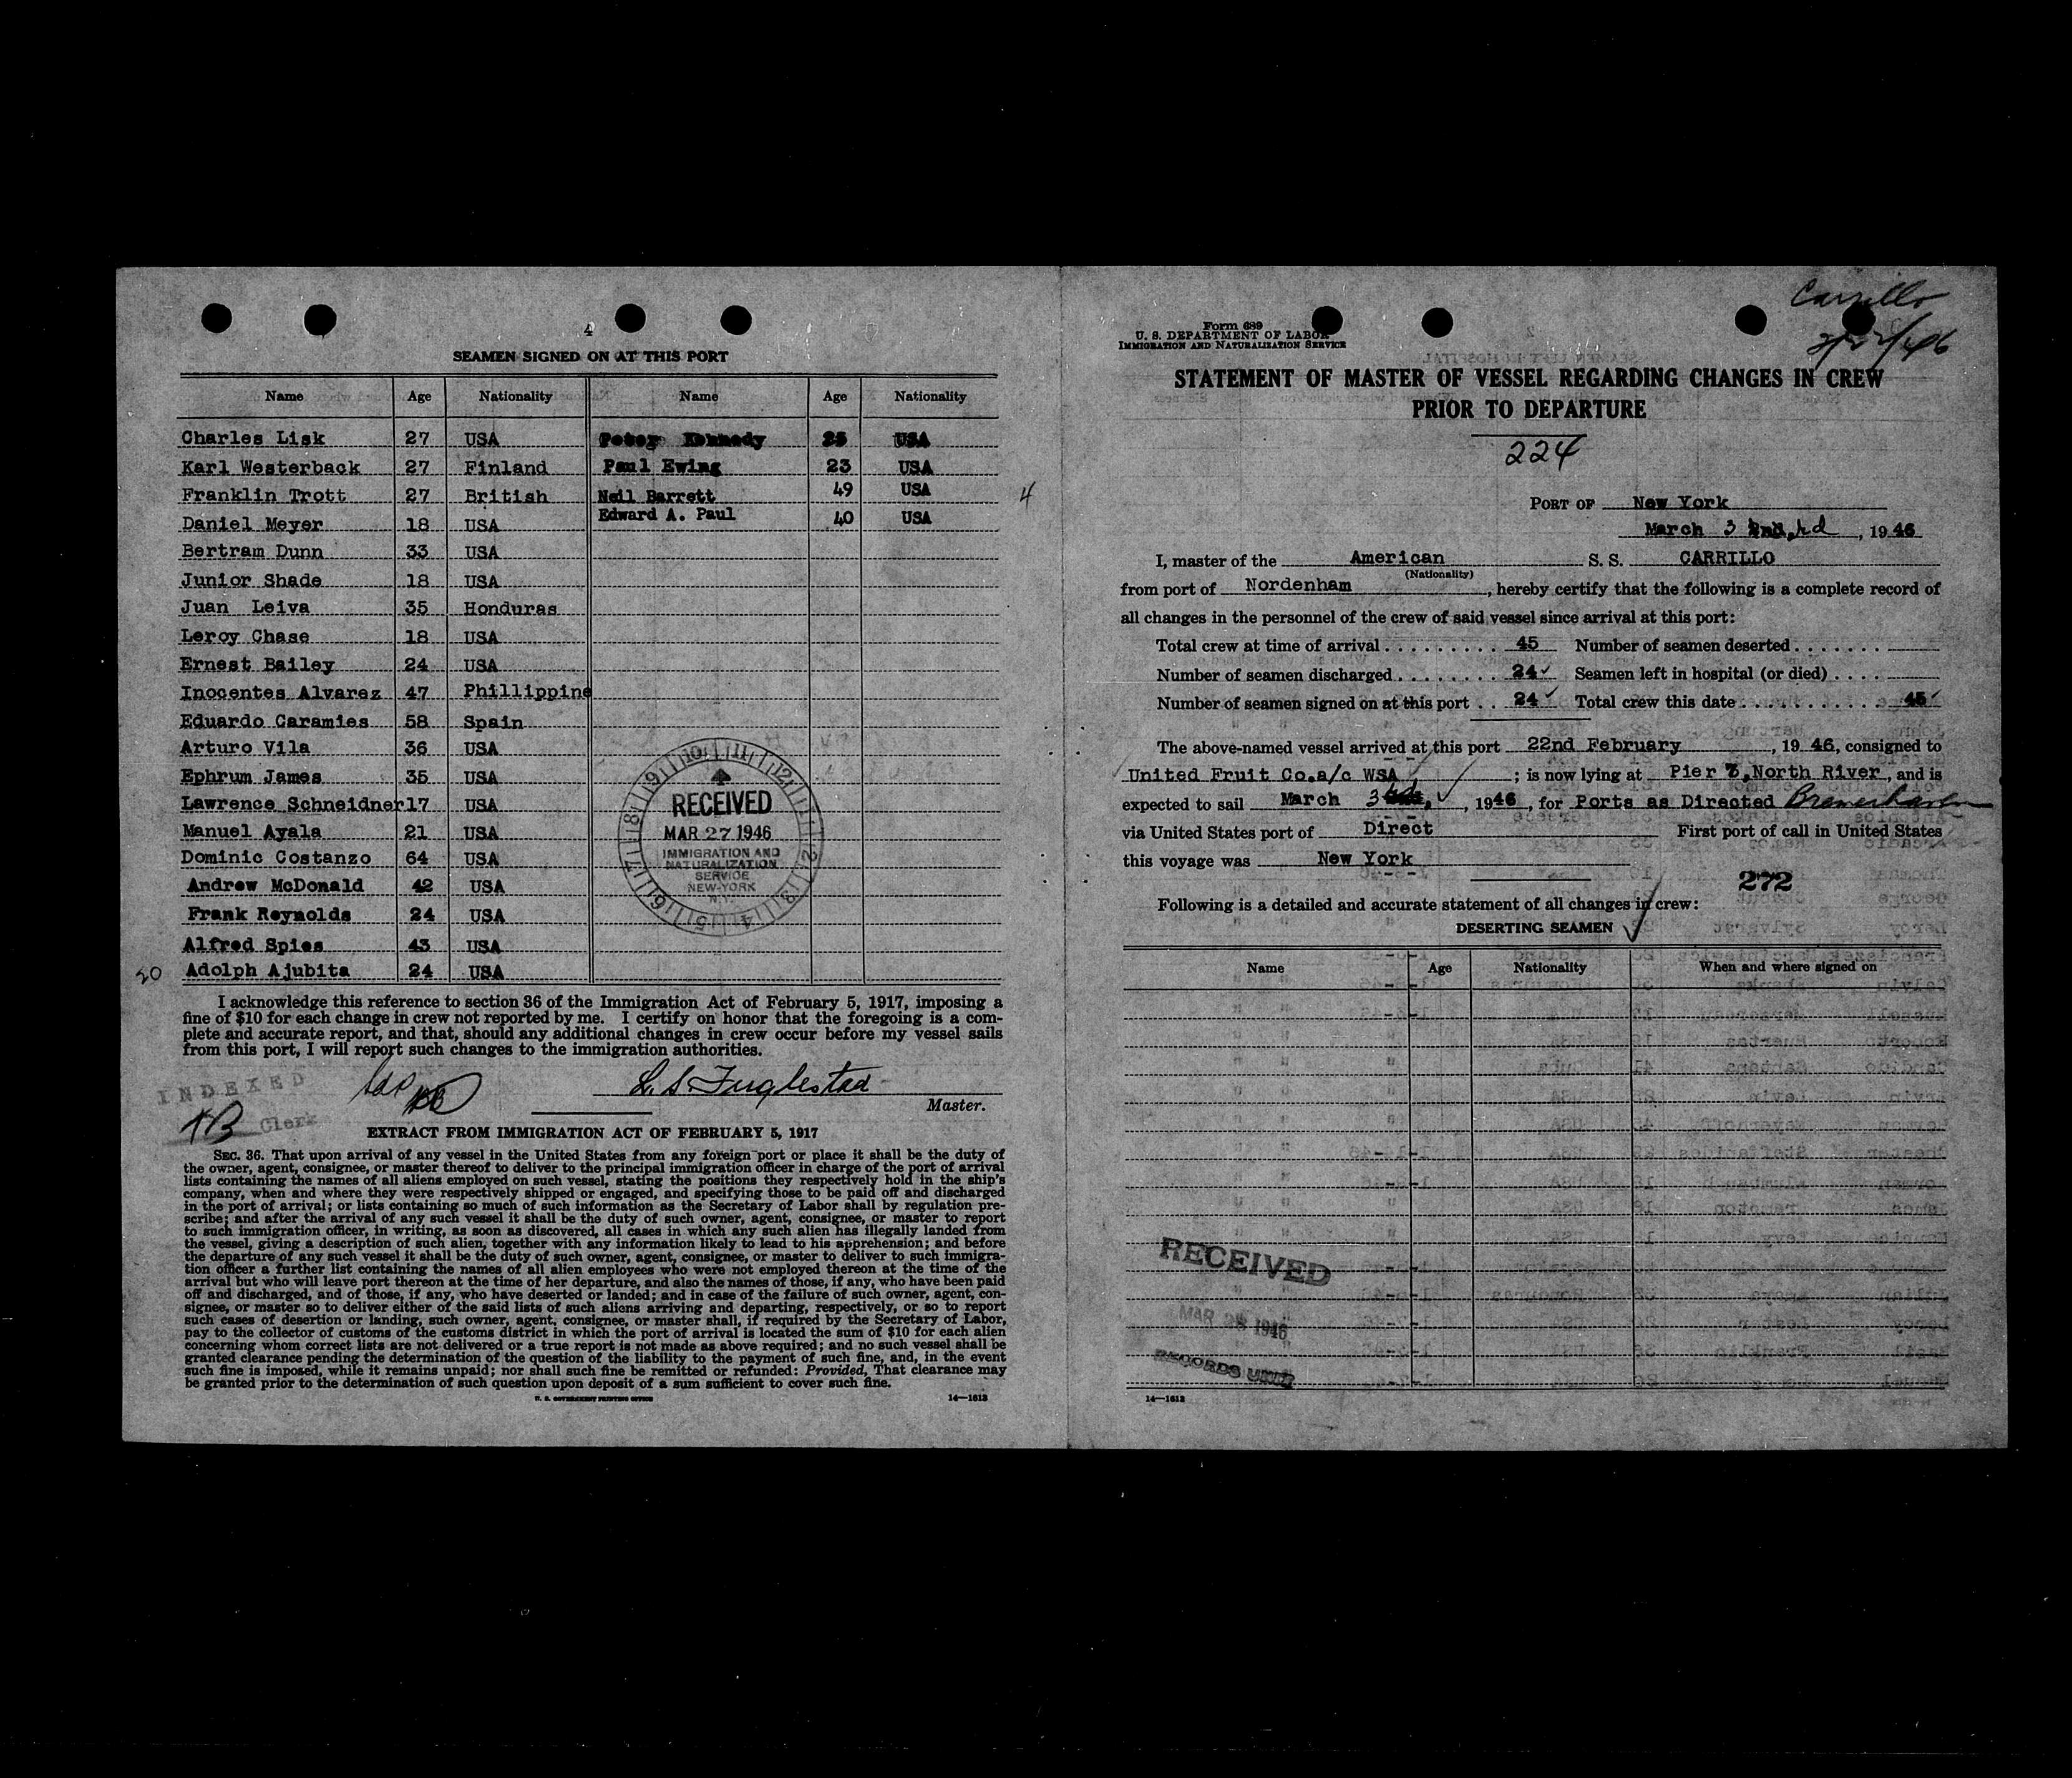 4
SEAMEN SIGNED ON AT THIS PORT
Name Age Nationality Name Age Nationality
Charles Lisk 27 USA Peter Kennedy 25 USA
Karl Westerback 27 Finland Paul Ewing 23 USA
Franklin Trott 27 British Neil Barrett 49 USA 4
Daniel Meyer 18 USA Edward A. Paul 40 USA
Bertram Dunn 33 USA
Junior Shade 18 USA
Juan Leiva 35 Honduras
Leroy Chase 18 USA
Ernest Bailey 24 USA
Inocentes Alvarez 47 Phillippine
Eduardo Caramies 58 Spain
Arturo Vila 36 USA
Ephrum James 35 USA
Lawrence Schneidner 17 USA
Manuel Ayala 21 USA
Dominic Costanzo 64 USA
Andrew McDonald 42 USA
Frank Reynolds 24 USA
Alfred Spies 43 USA
20 Adolph Ajubita 24 USA
RECEIVED
MAR 27 1946
IMMIGRATION AND
NATURALIZATION
SERVICE
NEW-YORK
N.Y.
I acknowledge this reference to section 36 of the Immigration Act of February 5, 1917, imposing a
fine of $10 for each change in crew not reported by me. I certify on honor that the foregoing is a com-
plete and accurate report, and that, should any additional changes in crew occur before my vessel sails
from this port, I will report such changes to the immigration authorities.
INDEXED
L. S. Fuglestad
Master.
KB Clerk
EXTRACT FROM IMMIGRATION ACT OF FEBRUARY 5, 1917
SEC. 36. That upon arrival of any vessel in the United States from any foreign port or place it shall be the duty of
the owner, agent, consignee, or master thereof to deliver to the principal immigration officer in charge of the port of arrival
lists containing the names of all aliens employed on such vessel, stating the positions they respectively hold in the ship's
company, when and where they were respectively shipped or engaged, and specifying those to be paid off and discharged
in the port of arrival; or lists containing so much of such information as the Secretary of Labor shall by regulation pre-
scribe; and after the arrival of any such vessel it shall be the duty of such owner, agent, consignee, or master to report
to such immigration officer, in writing, as soon as discovered, all cases in which any such alien has illegally landed from
the vessel, giving a description of such alien, together with any information likely to lead to his apprehension; and before
the departure of any such vessel it shall be the duty of such owner, agent, consignee, or master to deliver to such immigra-
tion officer a further list containing the names of all alien employees who were not employed thereon at the time of the
arrival but who will leave port thereon at the time of her departure, and also the names of those, if any, who have been paid
off and discharged, and of those, if any, who have deserted or landed; and in case of the failure of such owner, agent, con-
signee, or master so to deliver either of the said lists of such aliens arriving and departing, respectively, or so to report
such cases of desertion or landing, such owner, agent, consignee, or master shall, if required by the Secretary of Labor,
pay to the collector of customs of the customs district in which the port of arrival is located the sum of $10 for each alien
concerning whom correct lists are not delivered or a true report is not made as above required; and no such vessel shall be
granted clearance pending the determination of the question of the liability to the payment of such fine, and, in the event
such fine is imposed, while it remains unpaid; nor shall such fine be remitted or refunded: Provided, That clearance may
be granted prior to the determination of such question upon deposit of a sum sufficient to cover such fine.
U. S. GOVERNMENT PRINTING OFFICE 14—1612
Carrillo
Form 689
U. S. DEPARTMENT OF LABOR
IMMIGRATION AND NATURALIZATION SERVICE
STATEMENT OF MASTER OF VESSEL REGARDING CHANGES IN CREW
PRIOR TO DEPARTURE
224
PORT OF New York
March 3rd, 1946
I, master of the American S. S. CARRILLO
(Nationality)
from port of Nordenham, hereby certify that the following is a complete record of
all changes in the personnel of the crew of said vessel since arrival at this port:
Total crew at time of arrival 45 Number of seamen deserted
Number of seamen discharged 24 Seamen left in hospital (or died)
Number of seamen signed on at this port 24 Total crew this date 45
The above-named vessel arrived at this port 22nd February, 1946, consigned to
United Fruit Co.a/c WSA; is now lying at Pier 3, North River, and is
expected to sail March 3, 1946, for Ports as Directed Bremerhaven
via United States port of Direct First port of call in United States
this voyage was New York
272
Following is a detailed and accurate statement of all changes in crew:
DESERTING SEAMEN
Name Age Nationality When and where signed on
RECEIVED
MAR 28 1946
RECORDS UNIT
14—1612